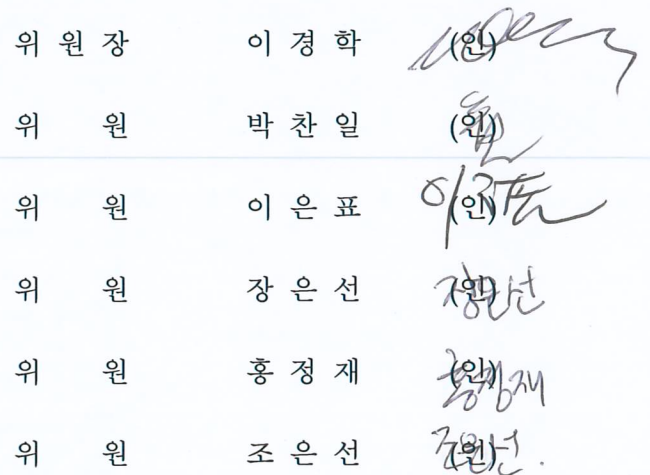 위 원 장 이 경 학 (인)
위 원 박 찬 일 (인)
위 원 이 은 표 (인)
위 원 장 은 선 (인)
위 원 홍 정 재 (인)
위 원 조 은 선 (인)